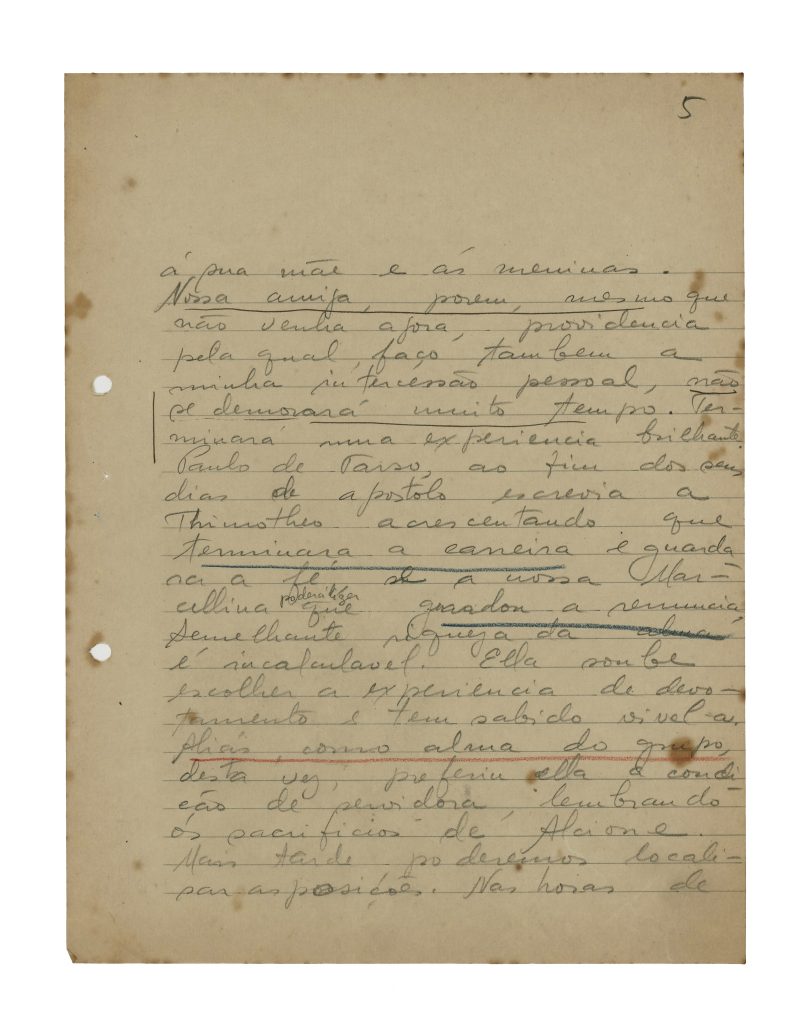 5
á sua mãe e ás meninas.
Nossa amiga, porem, mesmo que
não venha agora, providencia
pela qual faço tambem a
minha intercessão pessoal, não
se demorará muito tempo. Ter-
minará uma experiencia brilhante.
Paulo de Tarso, ao fim dos seus
dias de apostólo escrevia a
Thimotheo acrescentando que
terminara a carreira e guarda
ra a fé, e a nossa Mar-
cellina poderá dizer que guardou a renuncia.
Semelhante riqueza da alma
é incalculavel. Ella soube
escolher a experiencia de devo-
tamento e tem sabido vivel-a.
Aliás, como alma do grupo,
desta vez, preferiu ella a condi
ção de servidora, lembrando
os sacrificios de Alcione.
Mais tarde poderemos locali-
sar as posições. Nas horas de